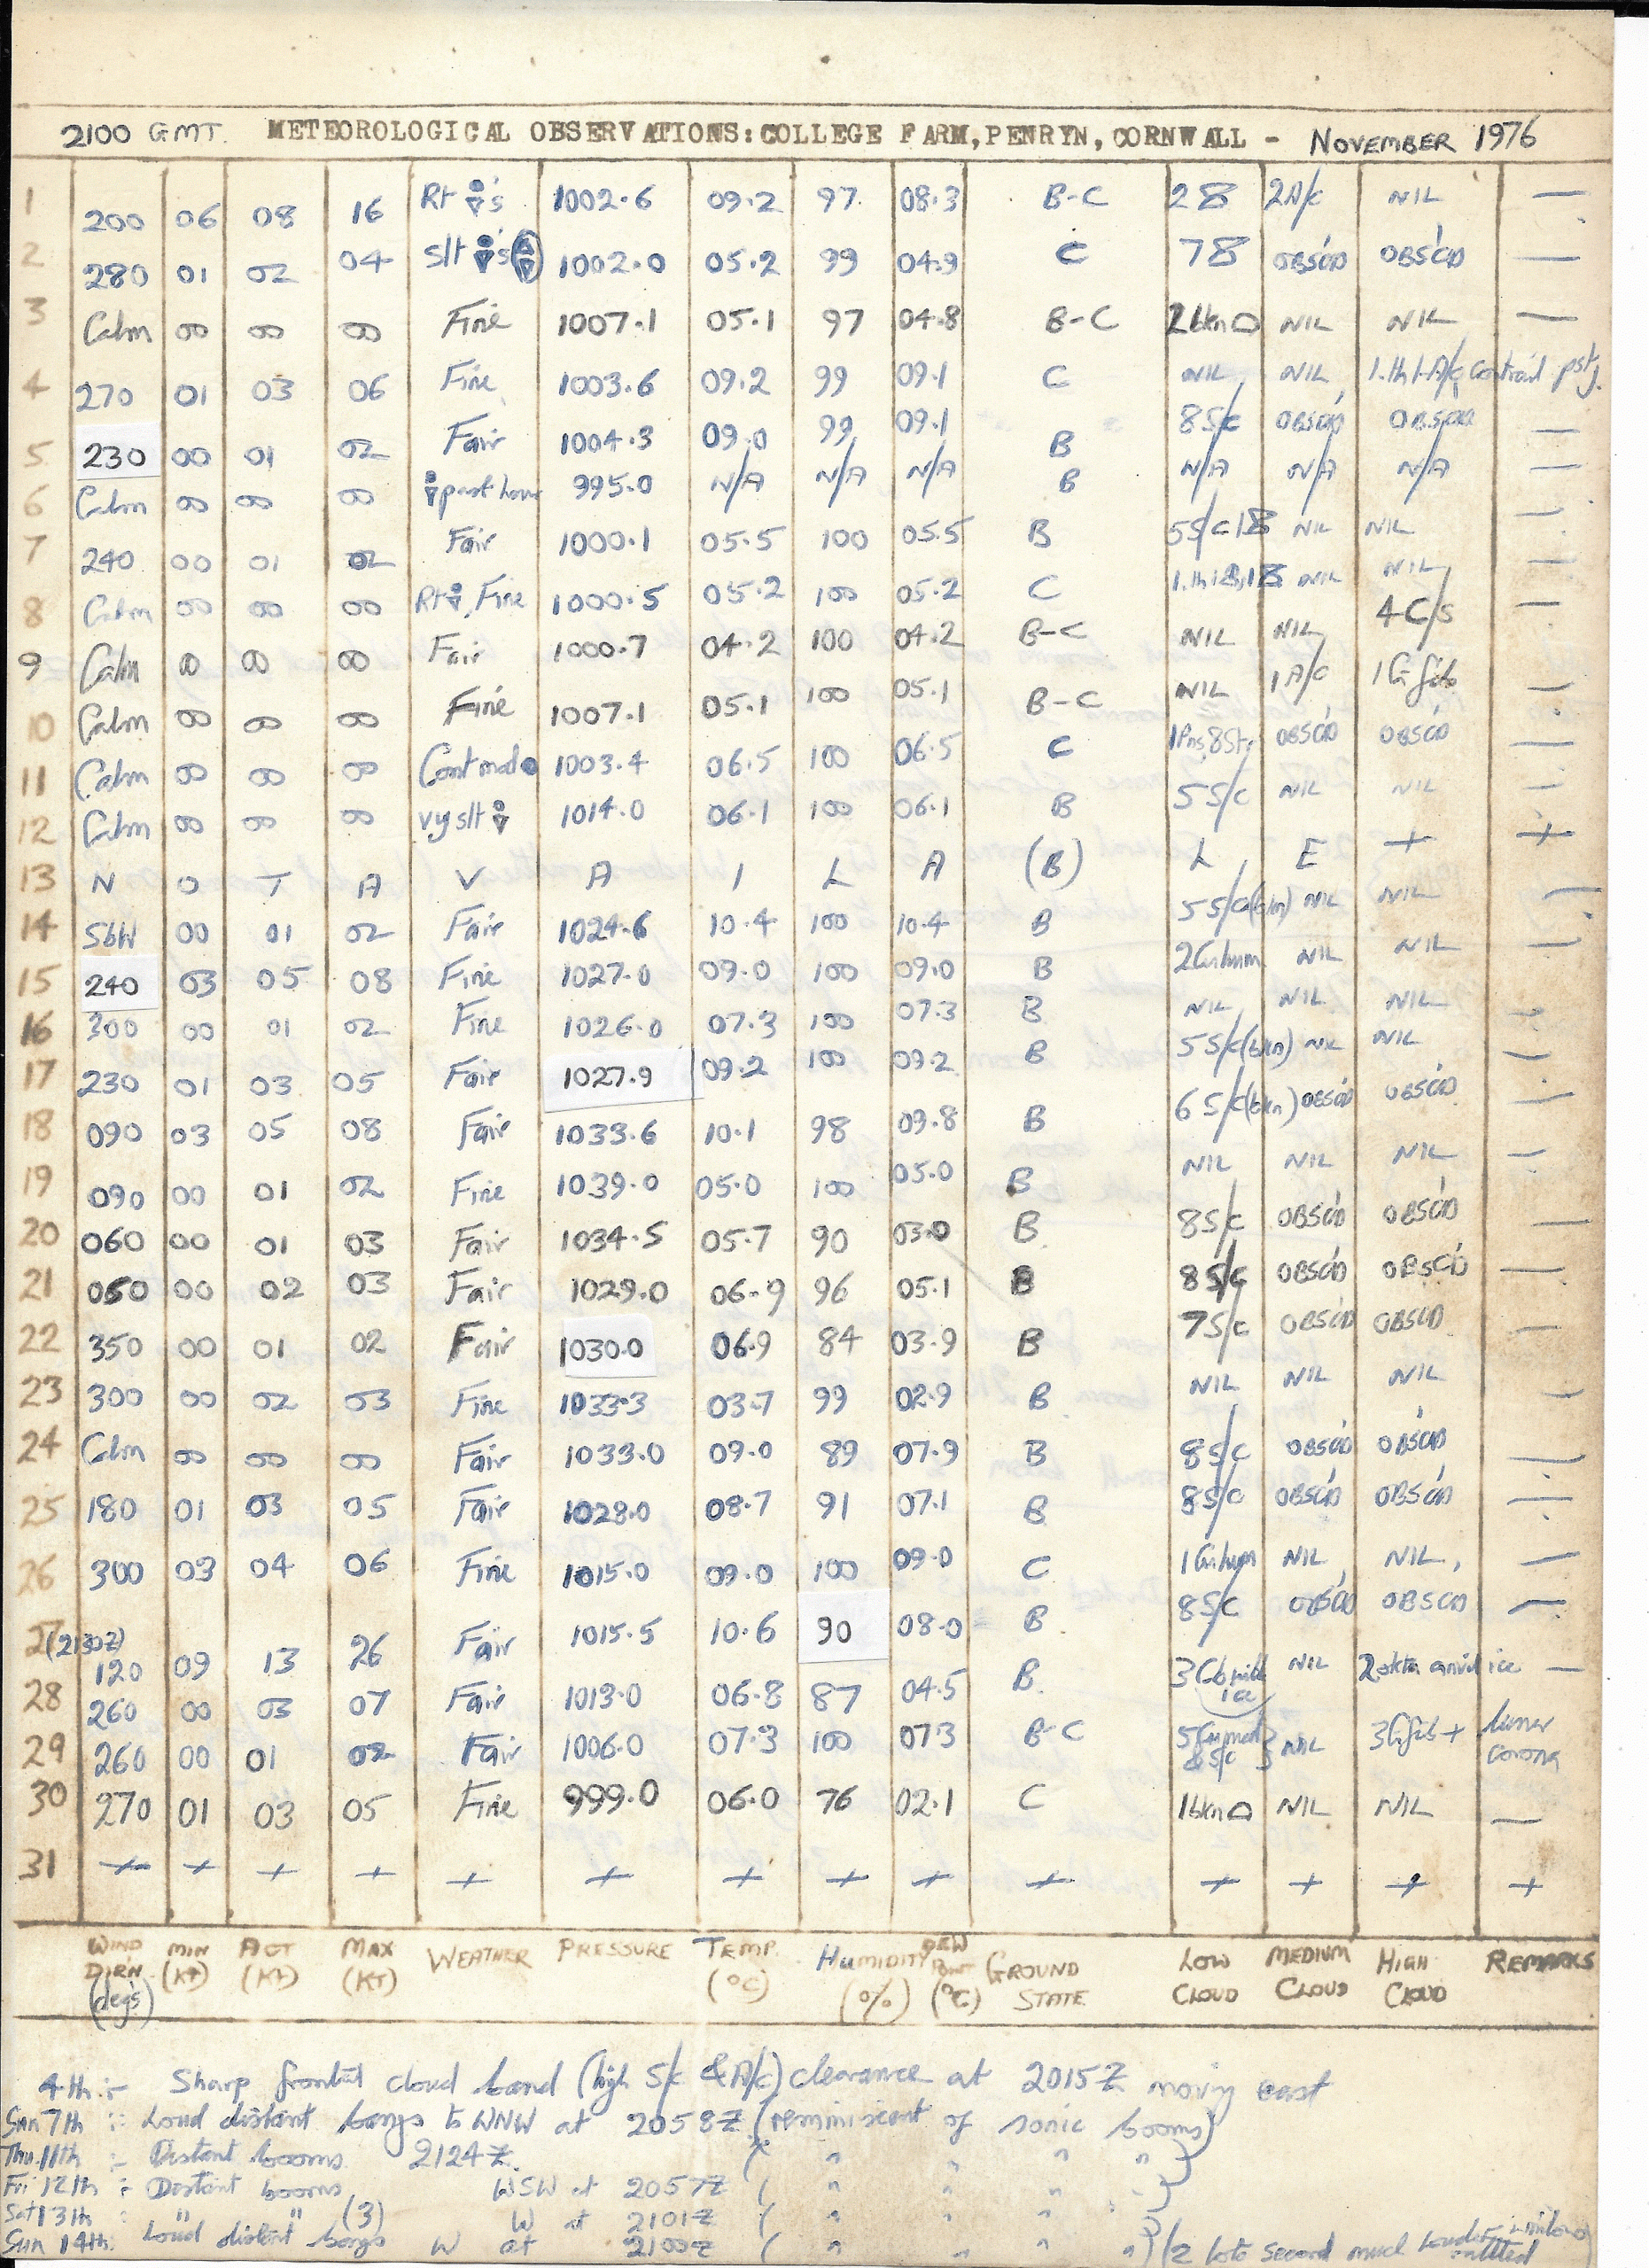 2100 GMT. METEOROLOGICAL OBSERVATIONS:COLLEGE FARM,PENRYN,CORNWALL - NOVEMBER 1976
1 200 06 08 16 Rt 's 1002.6 09.2 97 08.3 B-C 28 2A/c NIL —
2 280 01 02 04 Slt 's 1002.0 05.2 99 04.9 C 78 OBSC'D OBSC'D —
3 Calm 00 00 00 Fine 1007.1 05.1 97 04.8 B-C NIL NIL —
4 270 01 03 06 Fine 1003.6 09.2 99 09.1 C NIL NIL 1.th A/c contrail pst
5 230 00 01 02 Fair 1004.3 09.0 99 09.1 B 8S/c OBSC'D OBSC'D —
6 Calm 00 00 00 past hour 995.0 N/A N/A N/A B N/A N/A N/A —
7 240 00 01 02 Fair 1000.1 05.5 100 05.5 B 5S/c 18 NIL NIL —
8 Calm 00 00 00 Rt , Fine 1000.5 05.2 100 05.2 C NIL NIL —
9 Calm 00 00 00 Fair 1000.7 04.2 100 04.2 B-C NIL NIL 4C/s —
10 Calm 00 00 00 Fine 1007.1 05.1 100 05.1 B-C NIL 1A/c 1Ci fib —
11 Calm 00 00 00 Cont mod 1003.4 06.5 100 06.5 C OBSC'D OBSC'D —
12 Calm 00 00 00 vy slt 1014.0 06.1 100 06.1 B 5S/c NIL NIL —
13 N O T A V A I L A (B) L E + +
14 SbW 00 01 02 Fair 1024.6 10.4 100 10.4 B 5S/c(bkn) NIL NIL —
15 240 03 05 08 Fine 1027.0 09.0 100 09.0 B 2Cu hum NIL NIL —
16 300 00 01 02 Fine 1026.0 07.3 100 07.3 B NIL NIL NIL —
17 230 01 03 05 Fair 1027.9 09.2 100 09.2 B 5S/c(bkn) NIL NIL —
18 090 03 05 08 Fair 1033.6 10.1 98 09.8 B 6S/c(bkn) OBSC'D OBSC'D —
19 090 00 01 02 Fine 1039.0 05.0 100 05.0 B NIL NIL NIL —
20 060 00 01 03 Fair 1034.5 05.7 90 03.0 B 8S/c OBSC'D OBSC'D —
21 050 00 02 03 Fair 1029.0 06.9 96 05.1 B 8S/c OBSC'D OBSC'D —
22 350 00 01 02 Fair 1030.0 06.9 84 03.9 B 7S/c OBSC'D OBSC'D —
23 300 00 02 03 Fine 1033.3 03.7 99 02.9 B NIL NIL NIL —
24 Calm 00 00 00 Fair 1033.0 09.0 89 07.9 B 8S/c OBSC'D OBSC'D —
25 180 01 03 05 Fair 1028.0 08.7 91 07.1 B 8S/c OBSC'D OBSC'D —
26 300 03 04 06 Fine 1015.0 09.0 100 09.0 C 1Cu hum NIL NIL —
27 (2130Z) 120 09 13 26 Fair 1015.5 10.6 90 08.0 B 8S/c OBSC'D OBSC'D —
28 260 00 03 07 Fair 1013.0 06.8 87 04.5 B 3Cb NIL 2okta anvil ice —
29 260 00 01 02 Fair 1006.0 07.3 100 07.3 B-C 5Cu med & S/c NIL 3Ci fib + lunar corona
30 270 01 03 05 Fine 999.0 06.0 76 02.1 C 1bkn NIL NIL —
31 + + + + + + + + + + + + + +
WIND DIRN (degs) MIN (KT) ACT (KT) MAX (KT) WEATHER PRESSURE TEMP. (°C) HUMIDITY (%) DEW POINT (°C) GROUND STATE LOW CLOUD MEDIUM CLOUD HIGH CLOUD REMARKS
4th :- Sharp frontal cloud band (high S/c & A/c) clearance at 2015Z moving east
Sun 7th :- Loud distant bangs to WNW at 2058Z (reminiscent of sonic booms)
Thu.11th :- Distant booms 2124Z. ( " " " " )
Fri 12th :- Distant booms, WSW at 2057Z ( " " " " )
Sat 13th : " " (3) W at 2101Z ( " " " " )
Sun 14th: Loud distant bangs W at 2100Z ( " " " " ) (2 lots second much louder- windows rattled